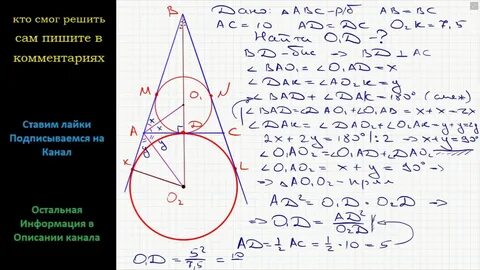 кто смог решить
сам пишите в
комментариях
Ставим лайки
Подписываемся на
Канал
Остальная
Информация в
Описании канала
B
M
N
O₁
x
x
A
D
C
y
y
K
L
O₂
Дано: △ABC - р/б AB = BC
AC = 10 AD = DC O₂K = 7,5
Найти O₁D - ?
BD - бис ⇒ BD ⊥ AC
∠BAO₁ = ∠O₁AD = x
∠DAK = ∠AO₂K = y
∠BAD + ∠DAK = 180° (смеж)
∠BAD = ∠DAO₁ + ∠O₁AB = x + x = 2x
∠DAK = ∠DAO₂ + ∠O₂AK = y + y = 2y
2x + 2y = 180° |:2 ⇒ x + y = 90°
∠O₁AO₂ = ∠O₁AD + ∠DAO₂
∠O₁AO₂ = x + y = 90° ⇒
⇒ △AO₁O₂ - прям
AD² = O₁D · O₂D
⇒ O₁D = AD²/O₂D
AD = ½ AC = ½ · 10 = 5
O₁D = 5²/7,5 = 10